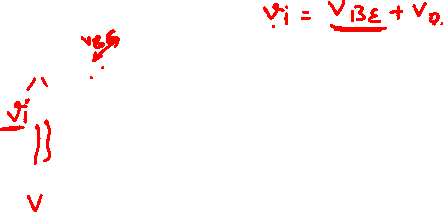 vi = VBE + Vo.
VBE
vi
V